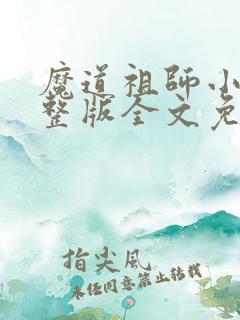 魔道祖师小
整版全文免
指尖风
未经同意禁止转载